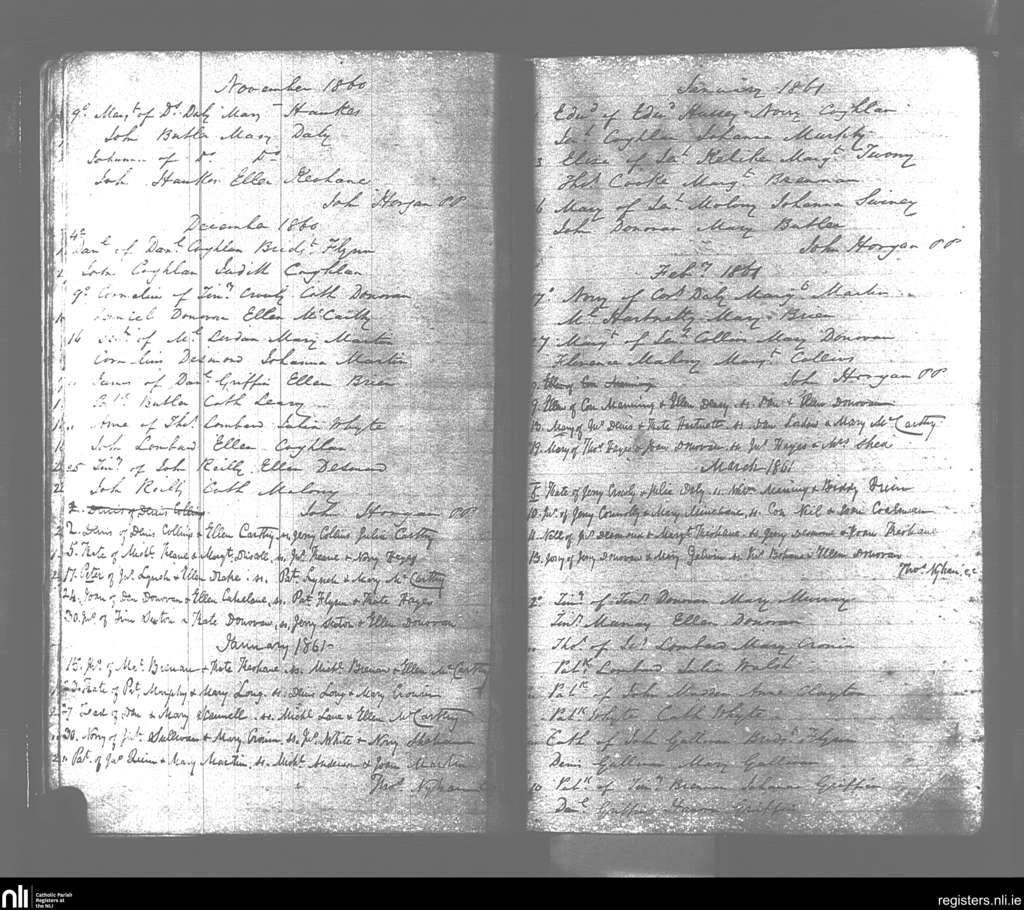 November 1860
9º Margt of Ds Daly Mary Hawkes
John Butler Mary Daly
Johanna of Ds Do
John Hawkes Ellen Keohane
John Horgan PP
December 1860
4º Danl of Danl Coghlan Bridt Flynn
John Coghlan Judith Coghlan
9º Cornelius of Timy Crowly Cath Donovan
Daniel Donovan Ellen McCarthy
16 of Ml Mary Martin
Cornelius Desmond Johanna Martin
" James of Danl Griffin Ellen Brien
Butler Cath Leary
" Anne of Ths Lombard Julia Whyte
John Lombard Ellen Coghlan
25 Timy of John Reilly Ellen Desmond
John Reilly Cath Malony
2. Denis of Denis Collins
John Horgan PP
2. Denis of Denis Collins & Ellen Carthy, ss, Jerry Colans Julia Carthy
5. Kate of Michl Keane & Margt Driscoll, ss, Jno Keane & Nory Hayes
17. Peter of Jas Lynch & Ellen Drake, ss, Pat Lynch & Mary McCarthy
24. Joan of Dan Donovan & Ellen Cahelane, ss, Pat Flynn & Kate Hayes
30. Jno of Tim Sexton & Kate Donovan, ss, Jerry Sexton & Ellen Donovan
January 1861
15. Jno of Mcl Brenan & Kate Keohane, ss, Michl Brenan & Ellen McCarthy
Kate of Pat Murphy & Mary Long, ss, Denis Long & Mary Cronin
27 of & Mary Scannell, ss, Michl Lane & Ellen McCarthy
30. Nory of Sullivan & Mary Cronin, ss, Jas White & Nory
" Pat of Jas Quinn & Mary Martin, ss, Michl Anderson & Joan Martin
Thos Nyhan
January 1861
Edwd of Edwd Hussey Nory Coghlan
Jerh Coghlan Johanna Murphy
3 Eliza of Jerh Keliher Margt Twomy
Ths Cooke Margt Brennan
6 Mary of Jerh Molony Johanna Sweney
John Donovan Mary Butler
John Horgan PP
Feby 1861
7º Nory of Cors Daly Margt Martin
Ml Hartnett Mary Brien
17 Margt of Jerh Collins Mary Donovan
Florence Mahony Margt Collins
John Horgan PP
9. Ellen of Con Manning
9. Ellen of Con Manning & Ellen Deasy, ss, Dan & Ellen Donovan
13. Mary of Jno Denis & Kate Hartnett, ss, Dan Lawlor & Mary McCarthy
19. Mary of Thos Hayes & Joan Donovan, ss, Jno Hayes & Mrs Shea
March 1861
8. Kate of Jerry Crowly & Julia Daly, ss, Manning & Biddy
10. Jno of Jerry Connolly & Mary Minehane, ss, Con Neil & Jane
11. Nell of Jno Desmond & Margt Keohane, ss, Jerry Desmond & Joan Keohane
13. Jerry of Jerry Donovan & Mary Galwin, ss, & Ellen Donovan
Thos Nyhan, c.c
3º Timy of Timy Donovan Mary Murray
Murray Ellen Donovan
Ths of Jas Lombard Mary Cronin
Patk Lombard Julia Walsh
Patk of John Madden Anne Clayton
Patk Whyte Cath Whyte
Cath of John Gallivan Bridt Flynn
Denis Gallivan Mary Gallivan
10 Patk of Timy Brennan Johanna Griffin
Danl Griffin Griffin
nli
Catholic Parish
Registers at
the NLI
registers.nli.ie